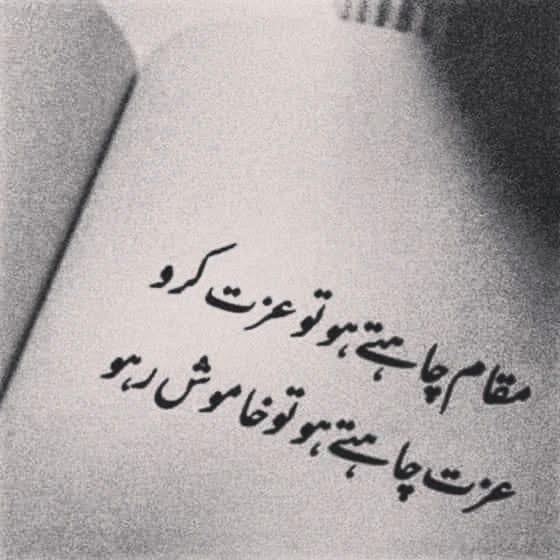 مقام چاہتے ہو تو عزت کرو
عزت چاہتے ہو تو خاموش رہو